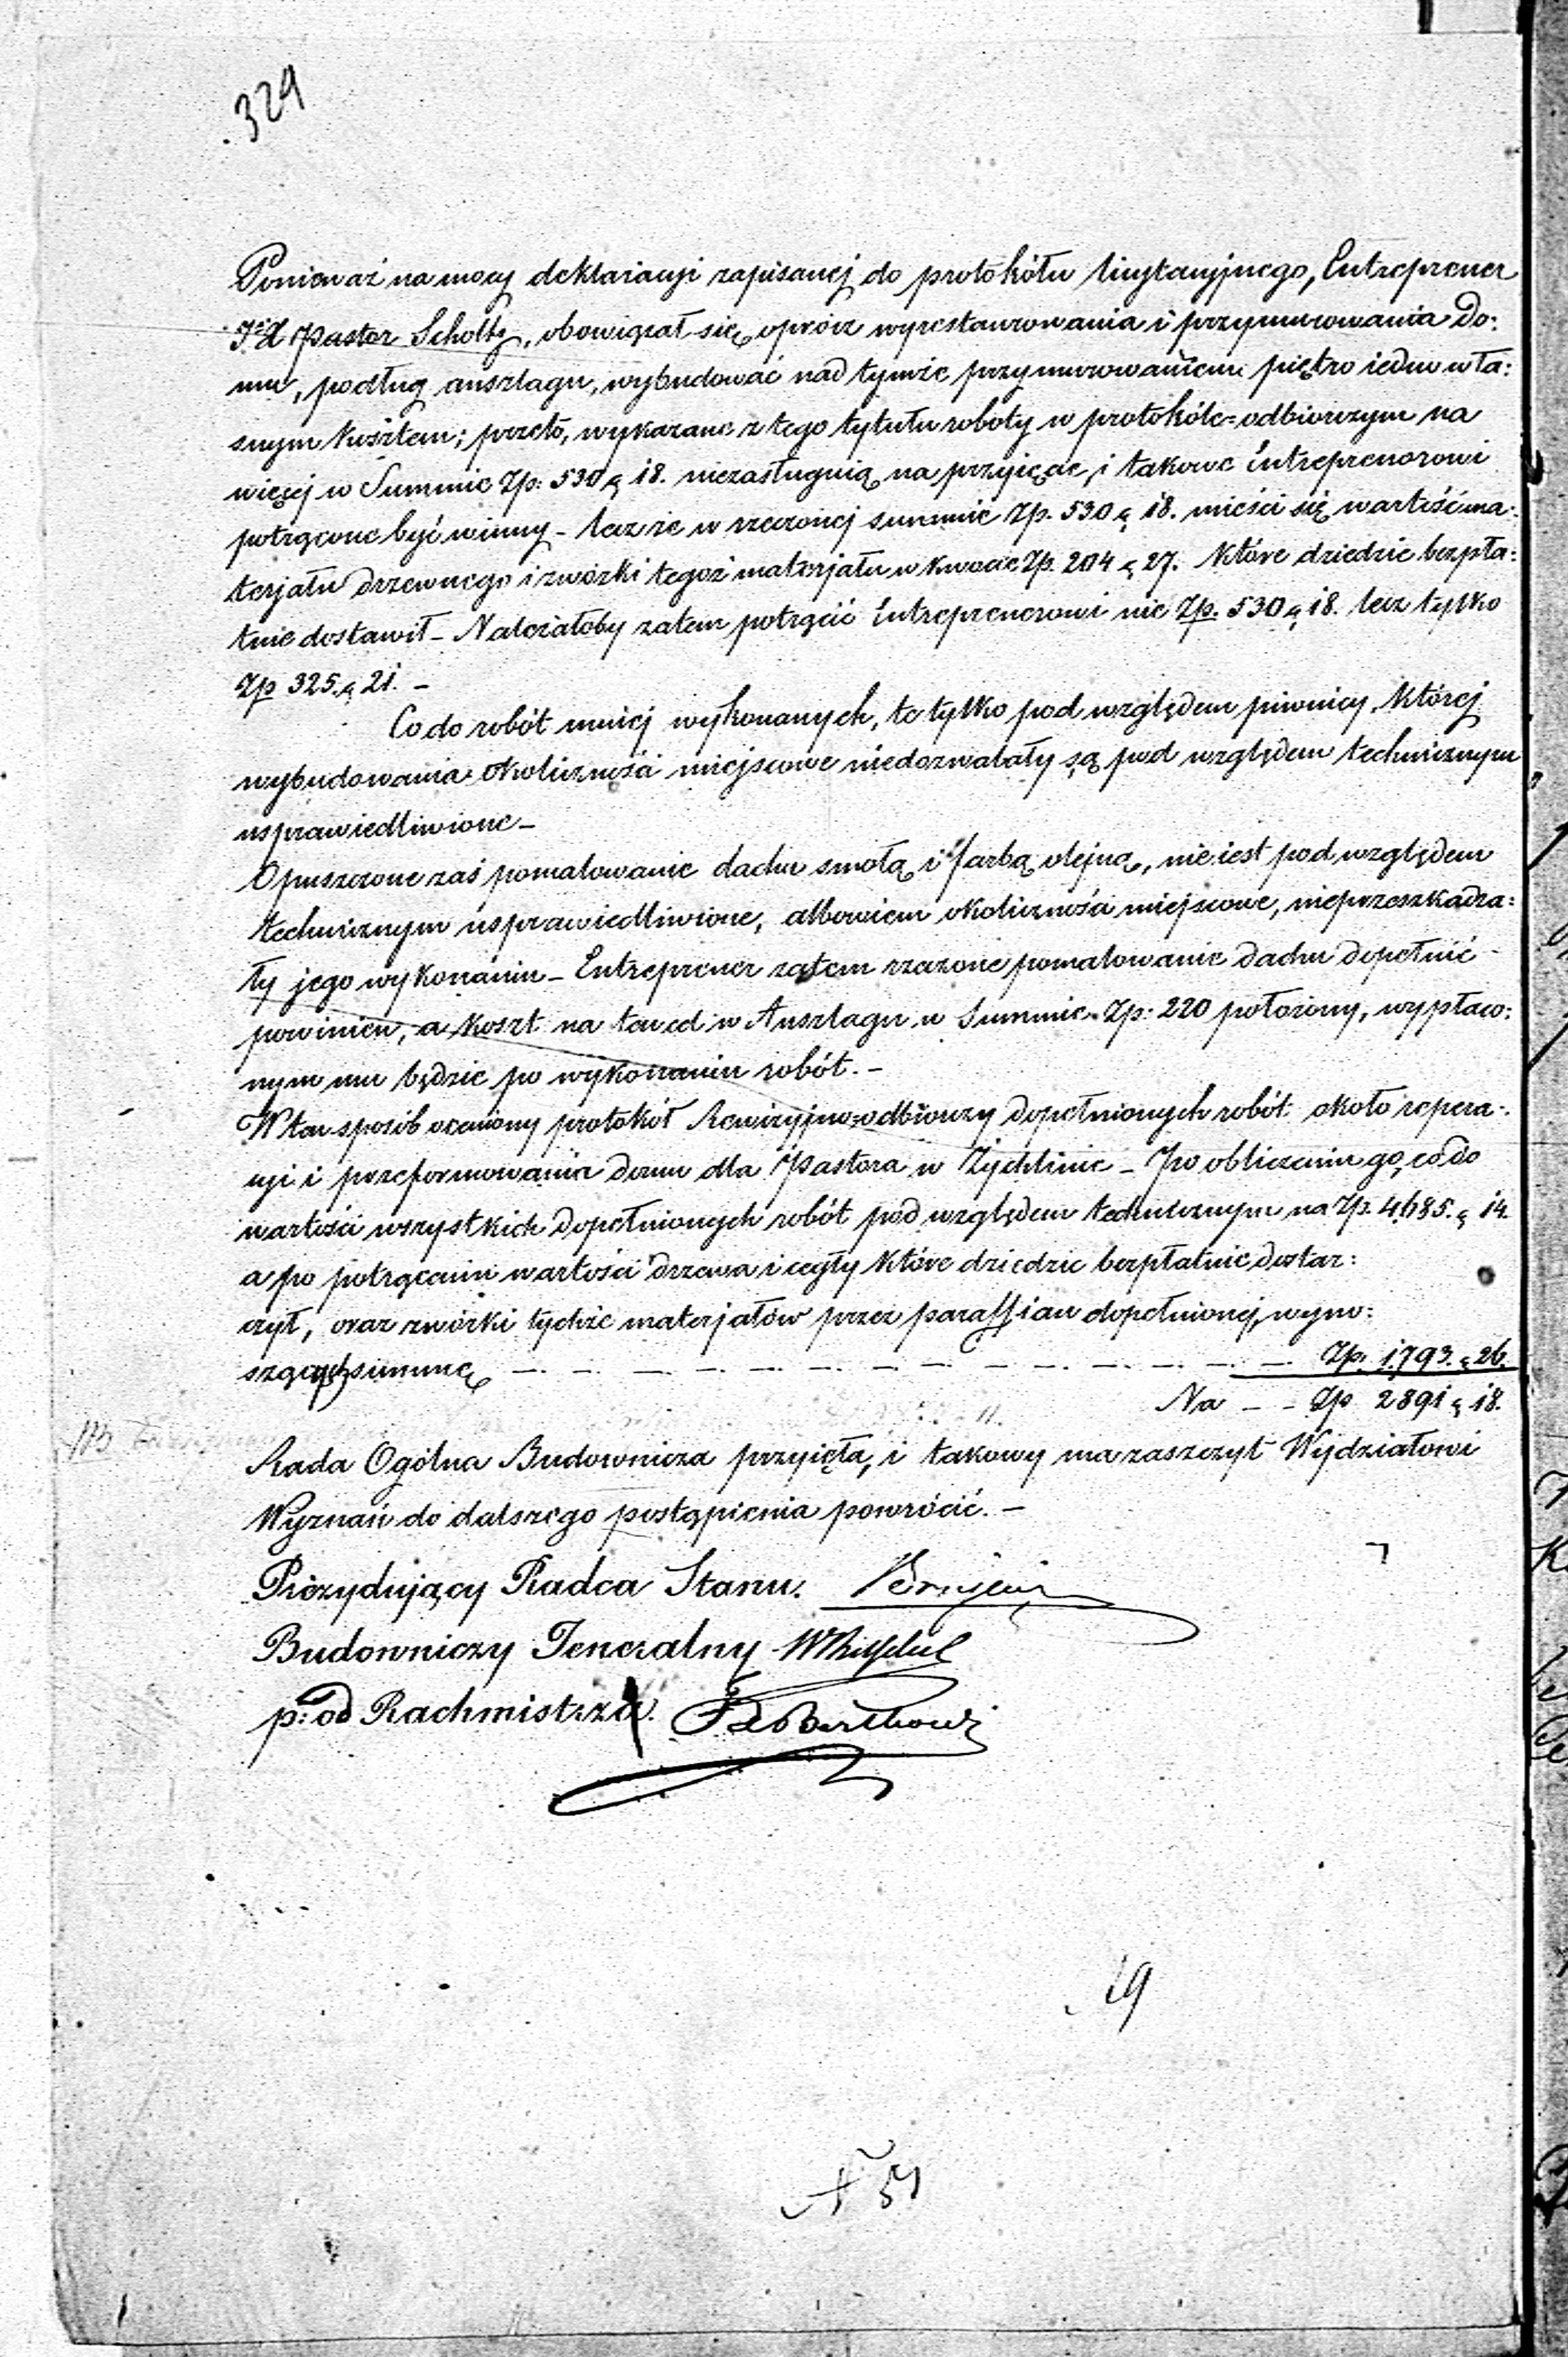 329
Ponieważ na mocy deklaracyi zapisanej do protokółu licytacyjnego, Entreprener
JX Pastor Scholtz, obowiązał się oprócz wyrestaurowania i przymurowania Do:
mu, podług anszlagu, wybudować nad tymże przymurowaniem piętro iedno wła:
snym kosztem; przeto, wykazane z tego tytułu roboty w protokóle=odbiorczym na
więcej w Summie Zp: 530 g 18. niezasługuią na przyięcie, i takowe Entreprenerowi
potrącone być winny – lecz że w rzeczonej summie Zp. 530 g 18. mieści się wartość ma:
terjału drzewnego i zwózki tegoż materjału w kwocie Zp. 204 g 27. które dziedzic bezpła:
tnie dostawił – Należałoby zatem potrącić Entreprenerowi nie Zp. 530 g 18. lecz tylko
Zp 325. g 21. –
Co do robót mniej wykonanych, te tylko pod względem piwnicy, której
wybudowania okoliczności miejscowe niedozwalały są pod względem technicznym
usprawiedliwione –
Opuszczone zaś pomalowanie dachu smołą i farbą olejną, nie iest pod względem
technicznym usprawiedliwione, albowiem okoliczności miejscowe, nieprzeszkadza:
ły jego wykonaniu – Entreprener zatem rzeczone pomalowanie dachu dopełnić
powinien, a koszt na ten cel w Anszlagu w Summie Zp: 220 położony, wypłaco:
nym mu będzie po wykonaniu robót. –
W ten sposób oceniony protokół Rewizyjno=odbiorczy dopełnionych robót około repera:
cyi i przeformowania domu dla Pastora w Żychlinie – Po obliczeniu go, co do
wartości wszystkich dopełnionych robót pod względem technicznym na Zp. 4,685. g 14.
a po potrąceniu wartości drzewa i cegły które dziedzic bezpłatnie dostar:
czył, oraz zwózki tychże materjałów przez paraffian dopełnionej, wyno:
szącej summę – – – – – – – – – – – – – Zp. 1,793. g 26.
Na – – Zp 2891 g 18.
Rada Ogólna Budownicza przyięła, i takowy ma zaszczyt Wydziałowi
Wyznań do dalszego postąpienia powrócić. –
Prezydujący Radca Stanu.
Budowniczy Jeneralny
p: od Rachmistrza.
19
N 51